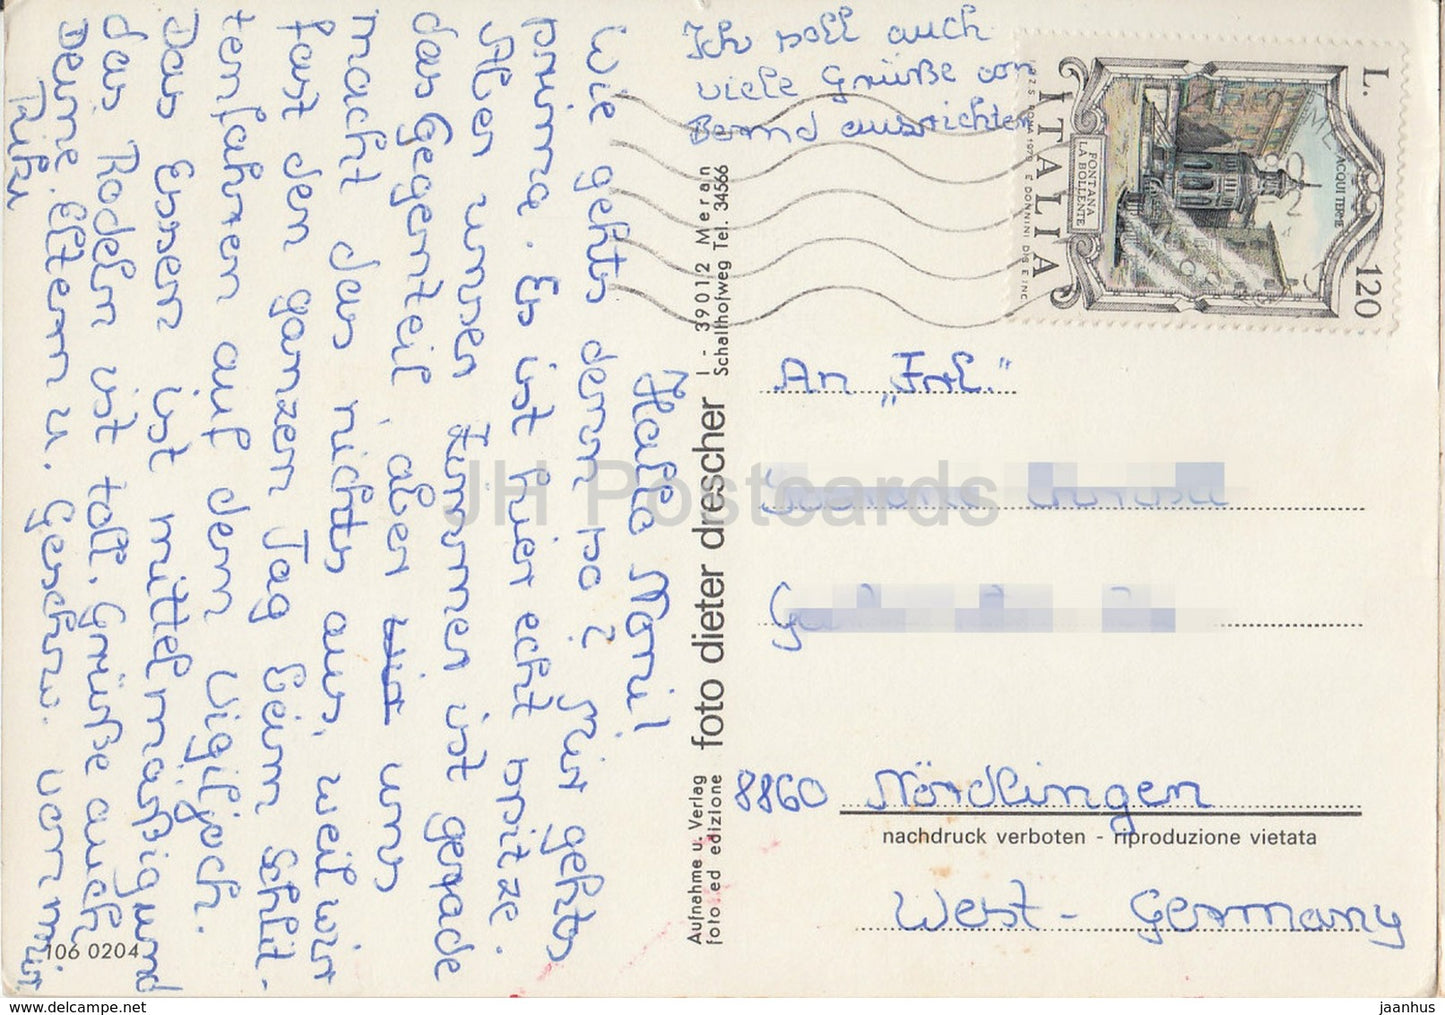 Ich soll auch
viele Grüße von
Bernd ausrichten
Hallo Moni!
Wie gehts denn so? Mir gehts
prima. Es ist hier echt spitze.
Aber unser Zimmer ist gerade
das Gegenteil, aber uns
macht das nichts aus, weil wir
fast den ganzen Tag beim Schlit-
tenfahren auf dem Vigiljoch.
Das Essen ist mittelmäßig und
das Rodeln ist toll. Grüße auch
Deine Eltern u. Geschw. von mir
106 0204
Aufnahme u. Verlag
foto ed edizione
foto dieter drescher
I - 39012 Meran
Schallhofweg Tel. 34566
L. 120
ACQUI TERME
FONTANA
LA BOLLENTE
ITALIA
I.P.Z.S. ROMA 1979 E. DONNINI DIS. E INC.
An „Frl."
8860 Nördlingen
nachdruck verboten - riproduzione vietata
West-Germany
JH Postcards
www.delcampe.net
jaanhus